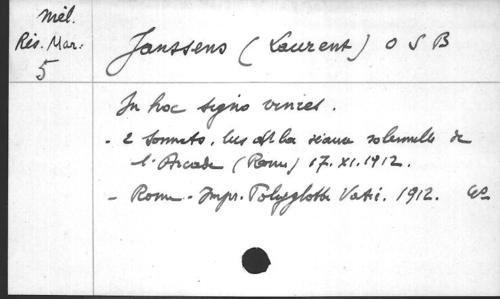 Mél.
Rés. Mar.
5
Janssens (Laurent) O S B
In hoc signo vinces.
- 2 Sonnets, lus à la séance solennelle de
l'Arcade (Rome) 17.XI.1912.
- Rome - Impr. Polyglotte Vatic. 1912.